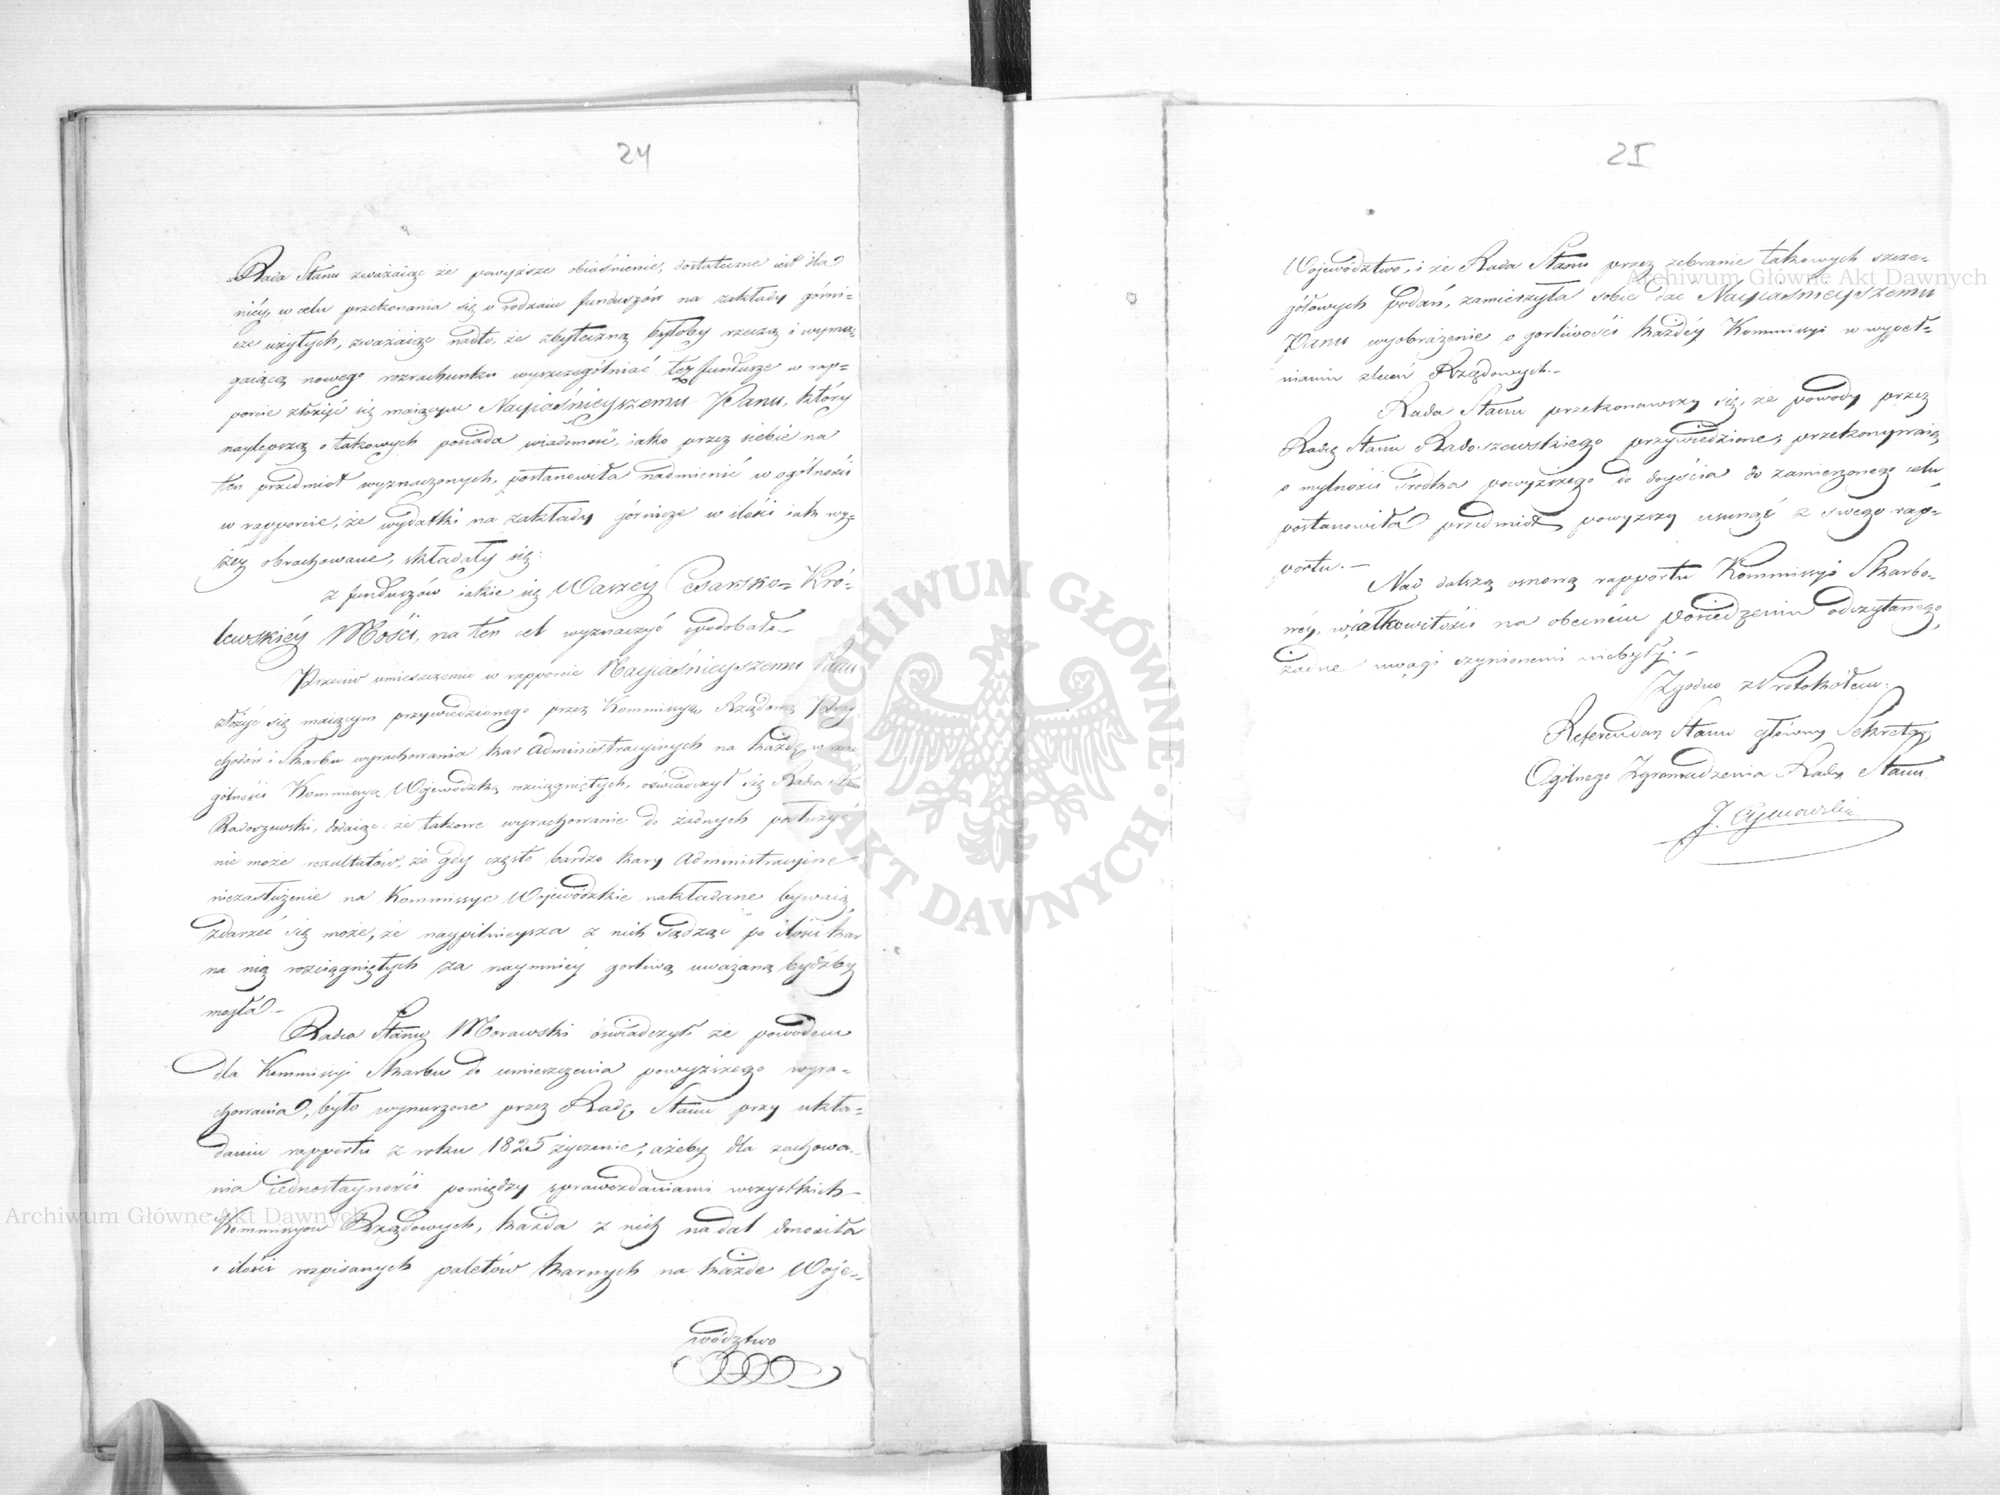 24
Rada Stanu zważaiąc że powyższe obiaśnienie, dostateczne iest dla
niéy, w celu przekonania się o rodzaiu funduszów na zakłady górni-
cze użytych, zważaiąc nadto, że zbyteczną byłoby rzeczą i wyma-
gaiącą nowego rozrachunku wyszczególniać też fundusze w rap-
porcie złożyć się maiącym Nayiaśnieyszemu Panu, który
naylepszą o takowych posiada wiadomość, iako przez siebie na
ten przedmiot wyznaczonych, postanowiła nadmienić w ogólności
w rapporcie, że wydatki na zakłady górnicze w ilości iak wy-
żey obrachowane, składały się:
z funduszów iakie się Waszéy Cesarsko-Kró-
lewskiéy Mości, na ten cel wyznaczyć spodobało.-
Przeciw umieszczeniu w rapporcie Nayiaśnieyszemu Panu
złożyć się maiącym przywiedzionego przez Kommissyą Rządową Przy-
chodów i Skarbu wyrachowania kar administracyinych na każdą w szcze-
gólności Kommissyą Wojewódzką rozciągniętych, oświadczył się Radca Stanu
Radoszewski, dodaiąc: że takowe wyrachowanie do żadnych posłużyć
nie może rezultatów, że gdy często bardzo kary administracyine
niezasłużenie na Kommissye Wojewódzkie nakładane bywaią,
zdarzeć się może, że naypilnieysza z nich sądząc po ilości kar
na nią rozciągniętych za naymniéy gorliwą uważaną bydźby
mogła.-
Radca Stanu Morawski oświadczył że powodem
dla Kommissyi Skarbu do umieszczenia powyższego wyra-
chowania, było wynurzone przez Radę Stanu przy ukła-
daniu rapportu z roku 1825 życzenie, ażeby dla zachowa-
nia iednostayności pomiędzy sprawozdaniami wszystkich
Kommissyów Rządowych, każda z nich nadal donosiła
o ilości rozpisanych paletów karnych na każde Woje-
wództwo
25
Województwo, i że Rada Stanu przez zebranie takowych szcze-
gółowych podań, zamierzyła sobie dać Nayiaśnieyszemu
Panu wyobrażenie o gorliwości każdéy Kommissyi w wypeł-
nianiu zleceń Rządowych.-
Rada Stanu przekonawszy się, że powody przez
Radcę Stanu Radoszewskiego przywiedzione, przekonywaią
o mylności środka powyższego do doyścia do zamierzonego celu
postanowiła przedmiot powyższy usunąć z swego rap-
portu.-
Nad dalszą osnową rapportu Kommissyi Skarbo-
wéy, w całkowitości na obecném posiedzeniu odczytanego,
żadne uwagi czynionemi niebyły.-
Zgodno z Protokółem:
Referendarz Stanu główny Sekretarz
Ogólnego Zgromadzenia Rady Stanu
Archiwum Główne Akt Dawnych
Archiwum Główne Akt Dawnych
ARCHIWUM GŁÓWNE AKT DAWNYCH